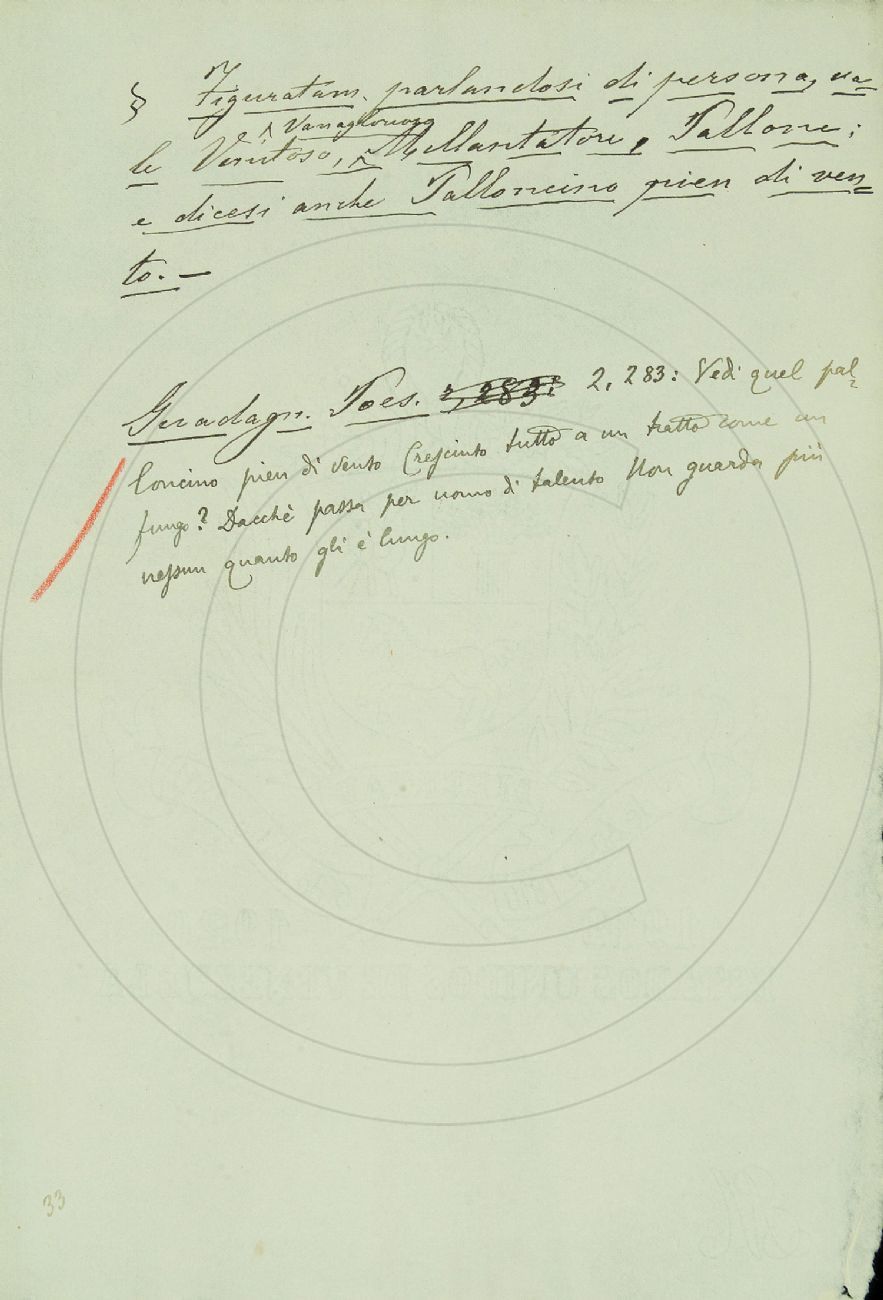 § Figuratam. parlandosi di persona, va=
le Ventoso, Vanaglorioso, Millantatore, Pallone;
e dicesi anche Palloncino pien di ven=
to. —
Guadagn. Poes. 2, 283: 2, 283: Vedi quel pal=
loncino pien di vento Cresciuto tutto a un tratto come un
fungo? Dacchè passa per uomo di talento Non guarda più
nessun quanto gli è lungo.
33